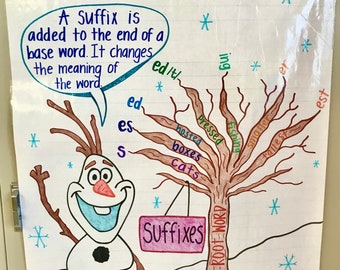 A Suffix is
added to the end of a
base word. It changes
the meaning of
the word.
ed
es
s
ed/t/
ing
er
est
hosted
boxes
cats
Suffixes
ROOT WORD